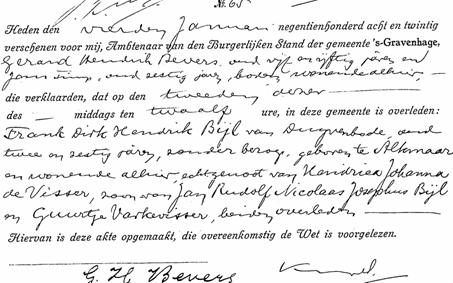 No. 65
Heden den vierden Januari negentienhonderd acht en twintig
verschenen voor mij, Ambtenaar van den Burgerlijken Stand der gemeente 's-Gravenhage,
Gerard Hendrik Bevers, oud vijf en vijftig jaren en
oud en zestig jaar, boden wonende alhier
die verklaarden, dat op den tweeden dezer
des — middags ten twaalf ure, in deze gemeente is overleden:
Frank Dirk Hendrik Bijl van Duyvenbode, oud
twee en zestig jaren, zonder beroep, geboren te Alkmaar
en wonende alhier, echtgenoot van Hendrica Johanna
de Visser, zoon van Jan Rudolf Nicolaas Josephus Bijl
en Geurtje Varkevisser, beiden overleden
Hiervan is deze akte opgemaakt, die overeenkomstig de Wet is voorgelezen.
G. H. Bevers